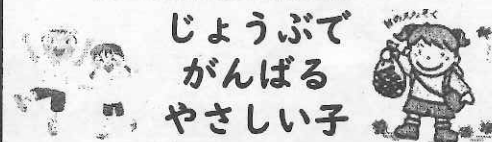 じょうぶで
がんばる
やさしい子